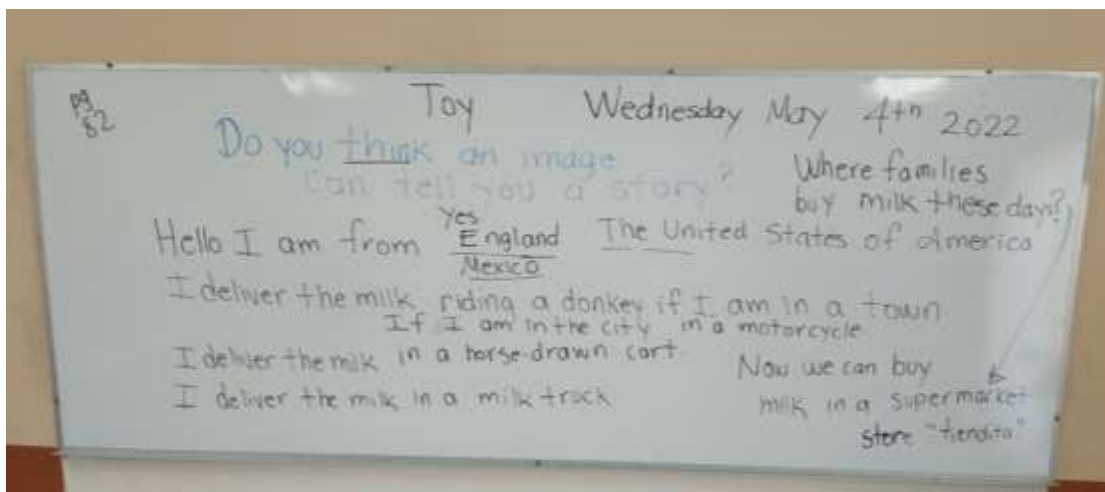 pg 82
Toy Wednesday May 4th 2022
Do you think an image
can tell you a story?
Where families
buy milk these days?
Yes
Hello I am from England The United States of America
Mexico
I deliver the milk riding a donkey if I am in a town
If I am in the city in a motorcycle
I deliver the milk in a horse-drawn cart
I deliver the milk in a milk truck
Now we can buy
milk in a supermarket
store "tiendita"